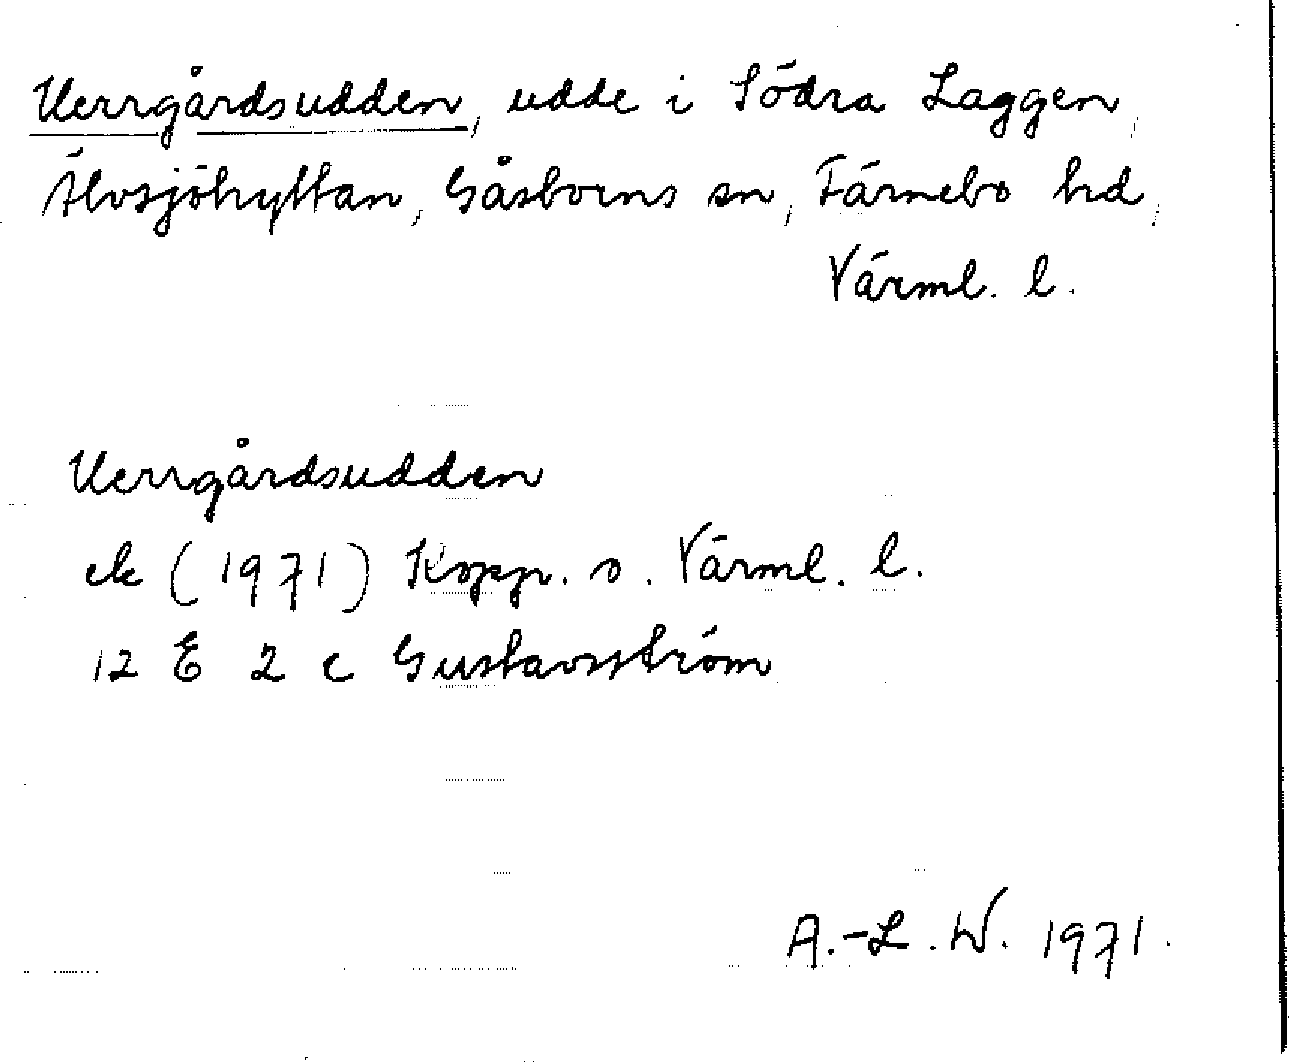 Herrgårdsudden, udde i Södra Laggen,
Älvsjöhyttan, Gåsborns sn, Färnebo hd,
Värml. l.
Herrgårdsudden
ek (1971) Kopp. o. Värml. l.
12 E 2 c Gustavsström
A.-L.W. 1971.